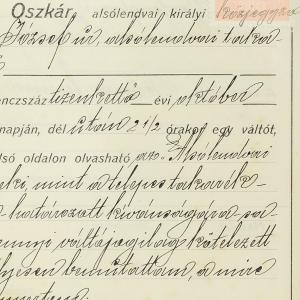 Oszkár, alsólendvai királyi közjegyző
József úr alsólendvai taka-
enczszáz tizenkettő évi október
napján, dél után 2 1/2 órakor egy váltót,
lsó oldalon olvasható azo "Alsólendvai
eki, mint a telepes takarék-
határozott kívánságára sa-
ennyi váltójogilag kötelezett
lyesen bemutattam, a mire